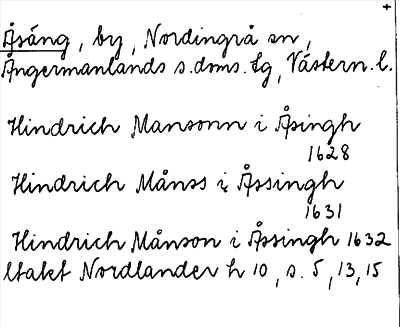 Åsäng, by, Nordingrå sn,
Ångermanlands s.doms.tg, Västern.l.
Hindrich Mansonn i Åsingh
1628
Hindrich Månss i Åssingh
1631
Hindrich Månson i Åssingh 1632
Utakt Nordlander h 10, s. 5, 13, 15